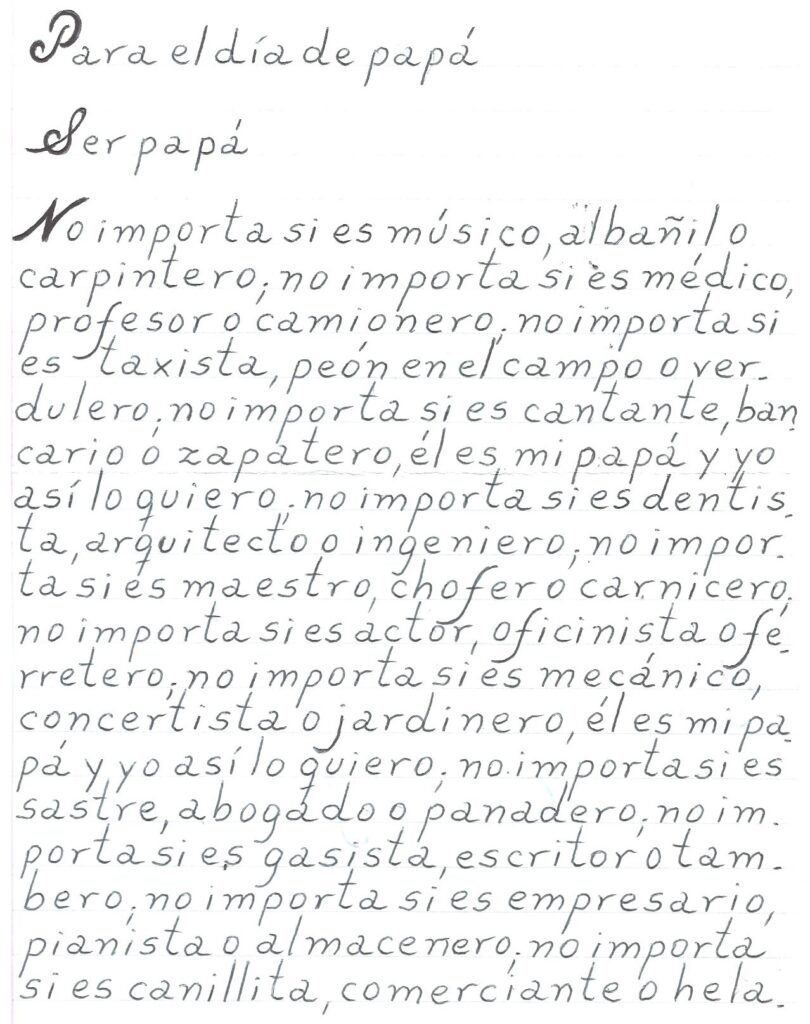 Para el día de papá
Ser papá
No importa si es músico, albañil o
carpintero; no importa si es médico,
profesor o camionero; no importa si
es taxista, peón en el campo o ver-
dulero; no importa si es cantante, ban
cario ó zapatero, él es mi papá y yo
así lo quiero; no importa si es dentis-
ta, arquitecto o ingeniero; no impor-
ta si es maestro, chofer o carnicero;
no importa si es actor, oficinista o fe-
rretero; no importa si es mecánico,
concertista o jardinero, él es mi pa-
pá y yo así lo quiero; no importa si es
sastre, abogado o panadero; no im-
porta si es gasista, escritor o tam-
bero; no importa si es empresario,
pianista o almacenero; no importa
si es canillita, comerciante o hela-